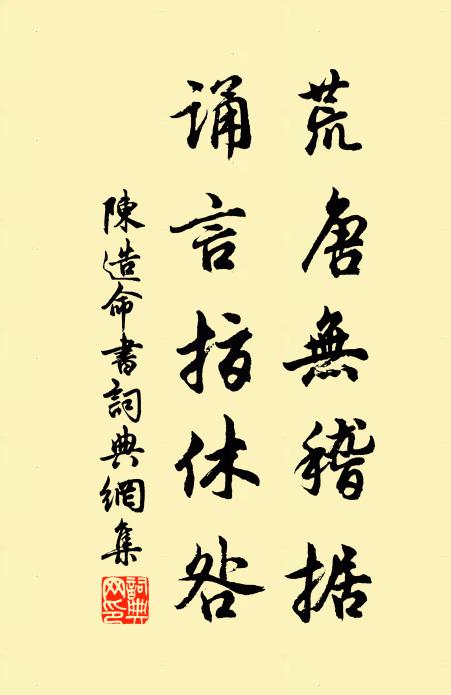 荒唐無稽据
誦言指休咎
陳造命書詞典網集
詞典網印